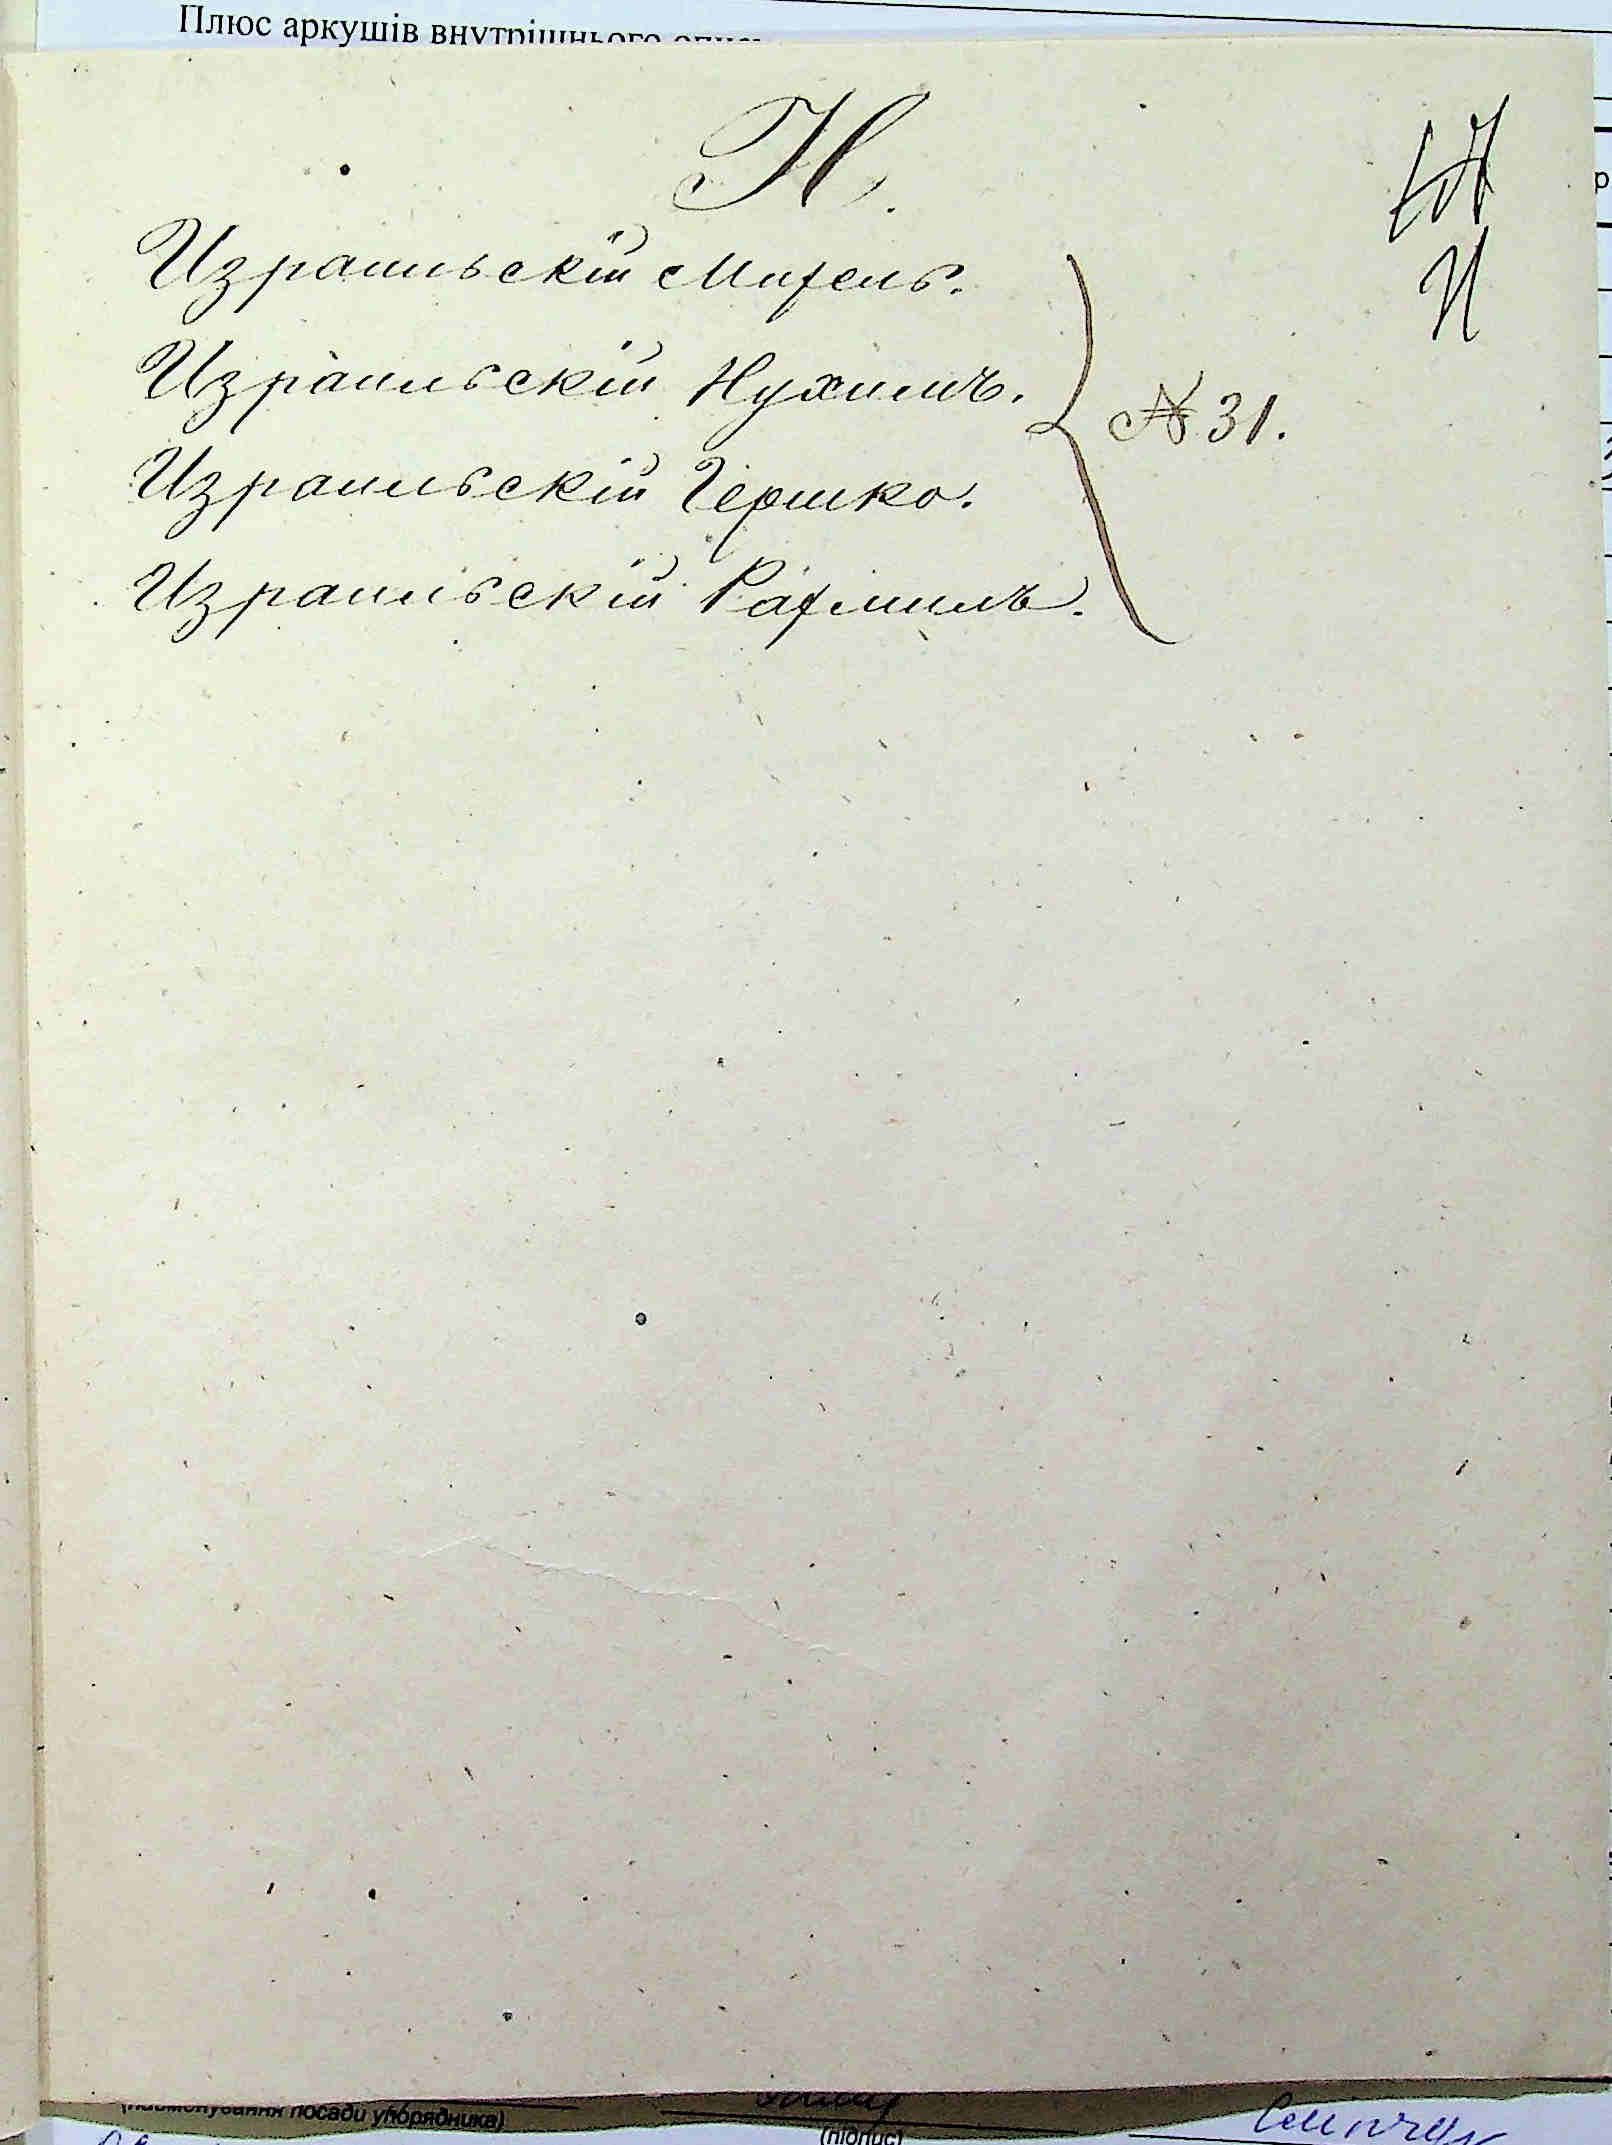 Плюс аркушів внутрішнього опису
И.
И
Израильскій Михель.
Израильскій Нухимъ.
№ 31.
Израильскій Гершко.
Израильскій Рахмиль.
(найменування посади упорядника)
(підпис)